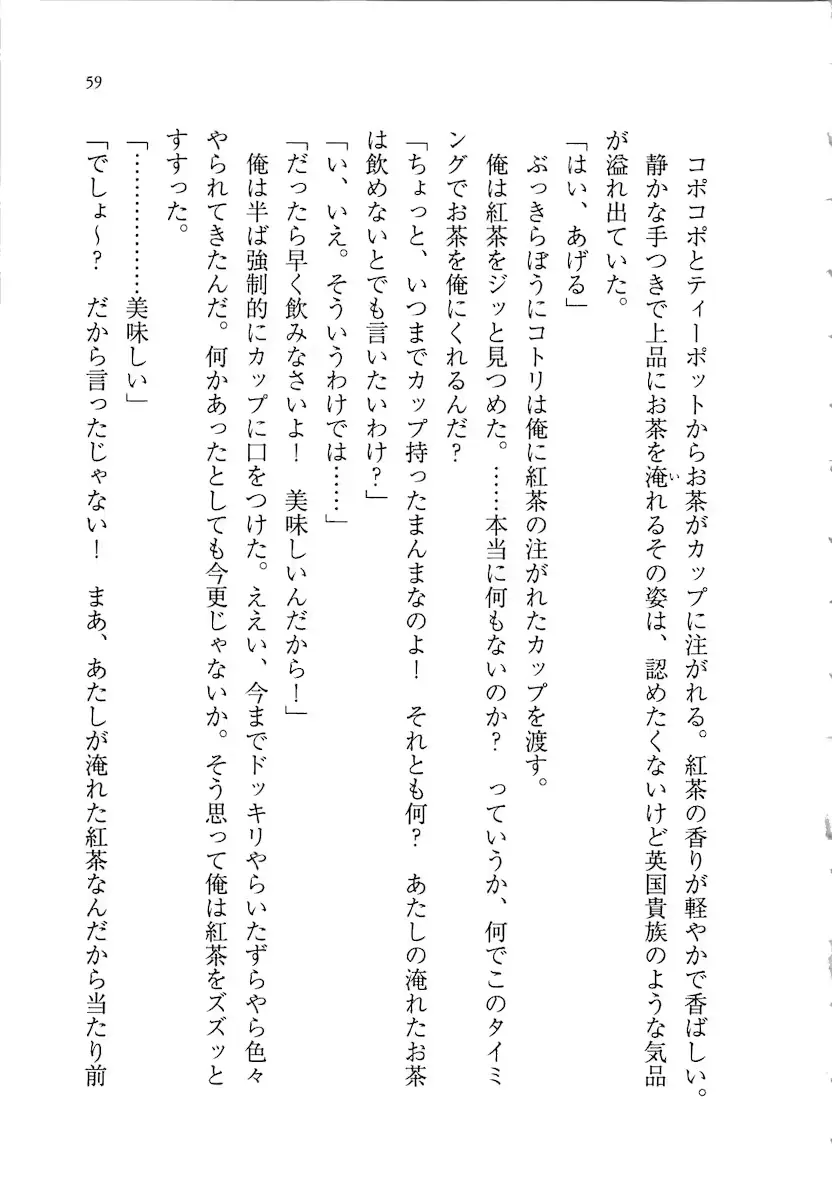 59
コポコポとティーポットからお茶がカップに注がれる。紅茶の香りが軽やかで香ばしい。
静かな手つきで上品にお茶を淹れるその姿は、認めたくないけど英国貴族のような気品
が溢れ出ていた。
「はい、あげる」
ぶっきらぼうにコトリは俺に紅茶の注がれたカップを渡す。
俺は紅茶をジッと見つめた。……本当に何もないのか？　っていうか、何でこのタイミ
ングでお茶を俺にくれるんだ？
「ちょっと、いつまでカップ持ったまんまなのよ！　それとも何？　あたしの淹れたお茶
は飲めないとでも言いたいわけ？」
「い、いえ。そういうわけでは……」
「だったら早く飲みなさいよ！　美味しいんだから！」
俺は半ば強制的にカップに口をつけた。ええい、今までドッキリやらいたずらやら色々
やられてきたんだ。何かあったとしても今更じゃないか。そう思って俺は紅茶をズズッと
すすった。
「………………美味しい」
「でしょ～？　だから言ったじゃない！　まあ、あたしが淹れた紅茶なんだから当たり前